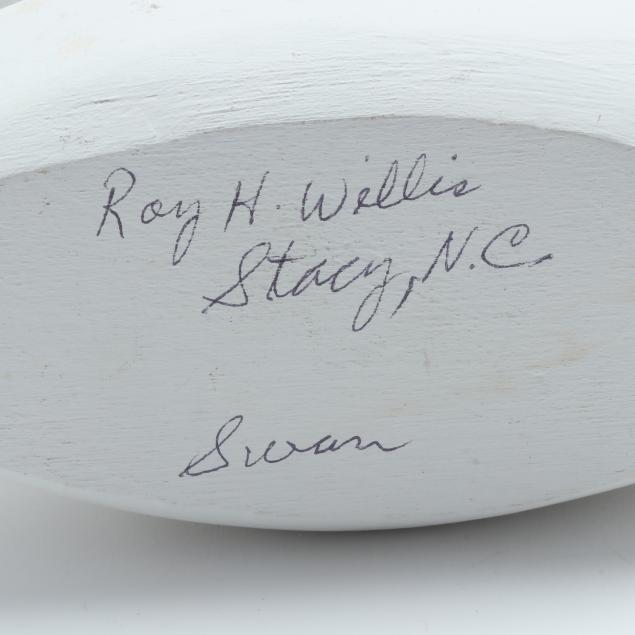 Roy H. Willis
Stacy, N.C.
Swan